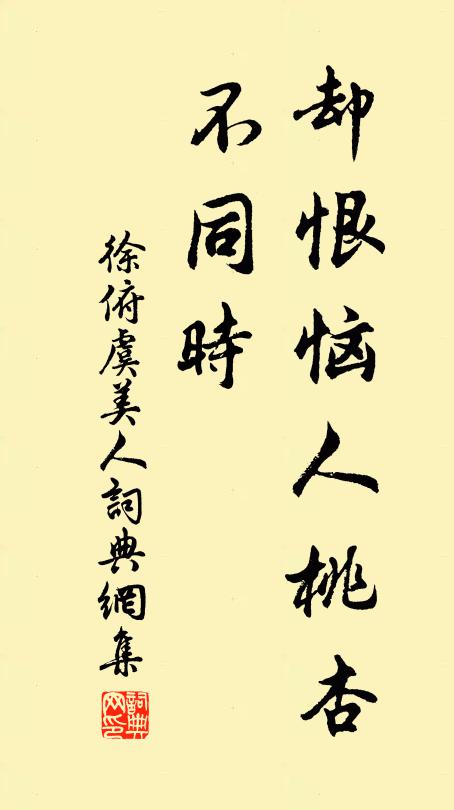 却恨恼人桃杏
不同時
徐俯虞美人詞典網集
詞典网印